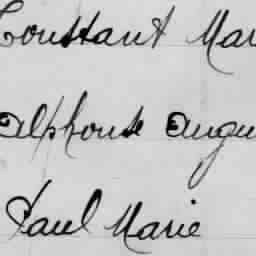 Constant Mar
Alphonse Augu
Paul Marie